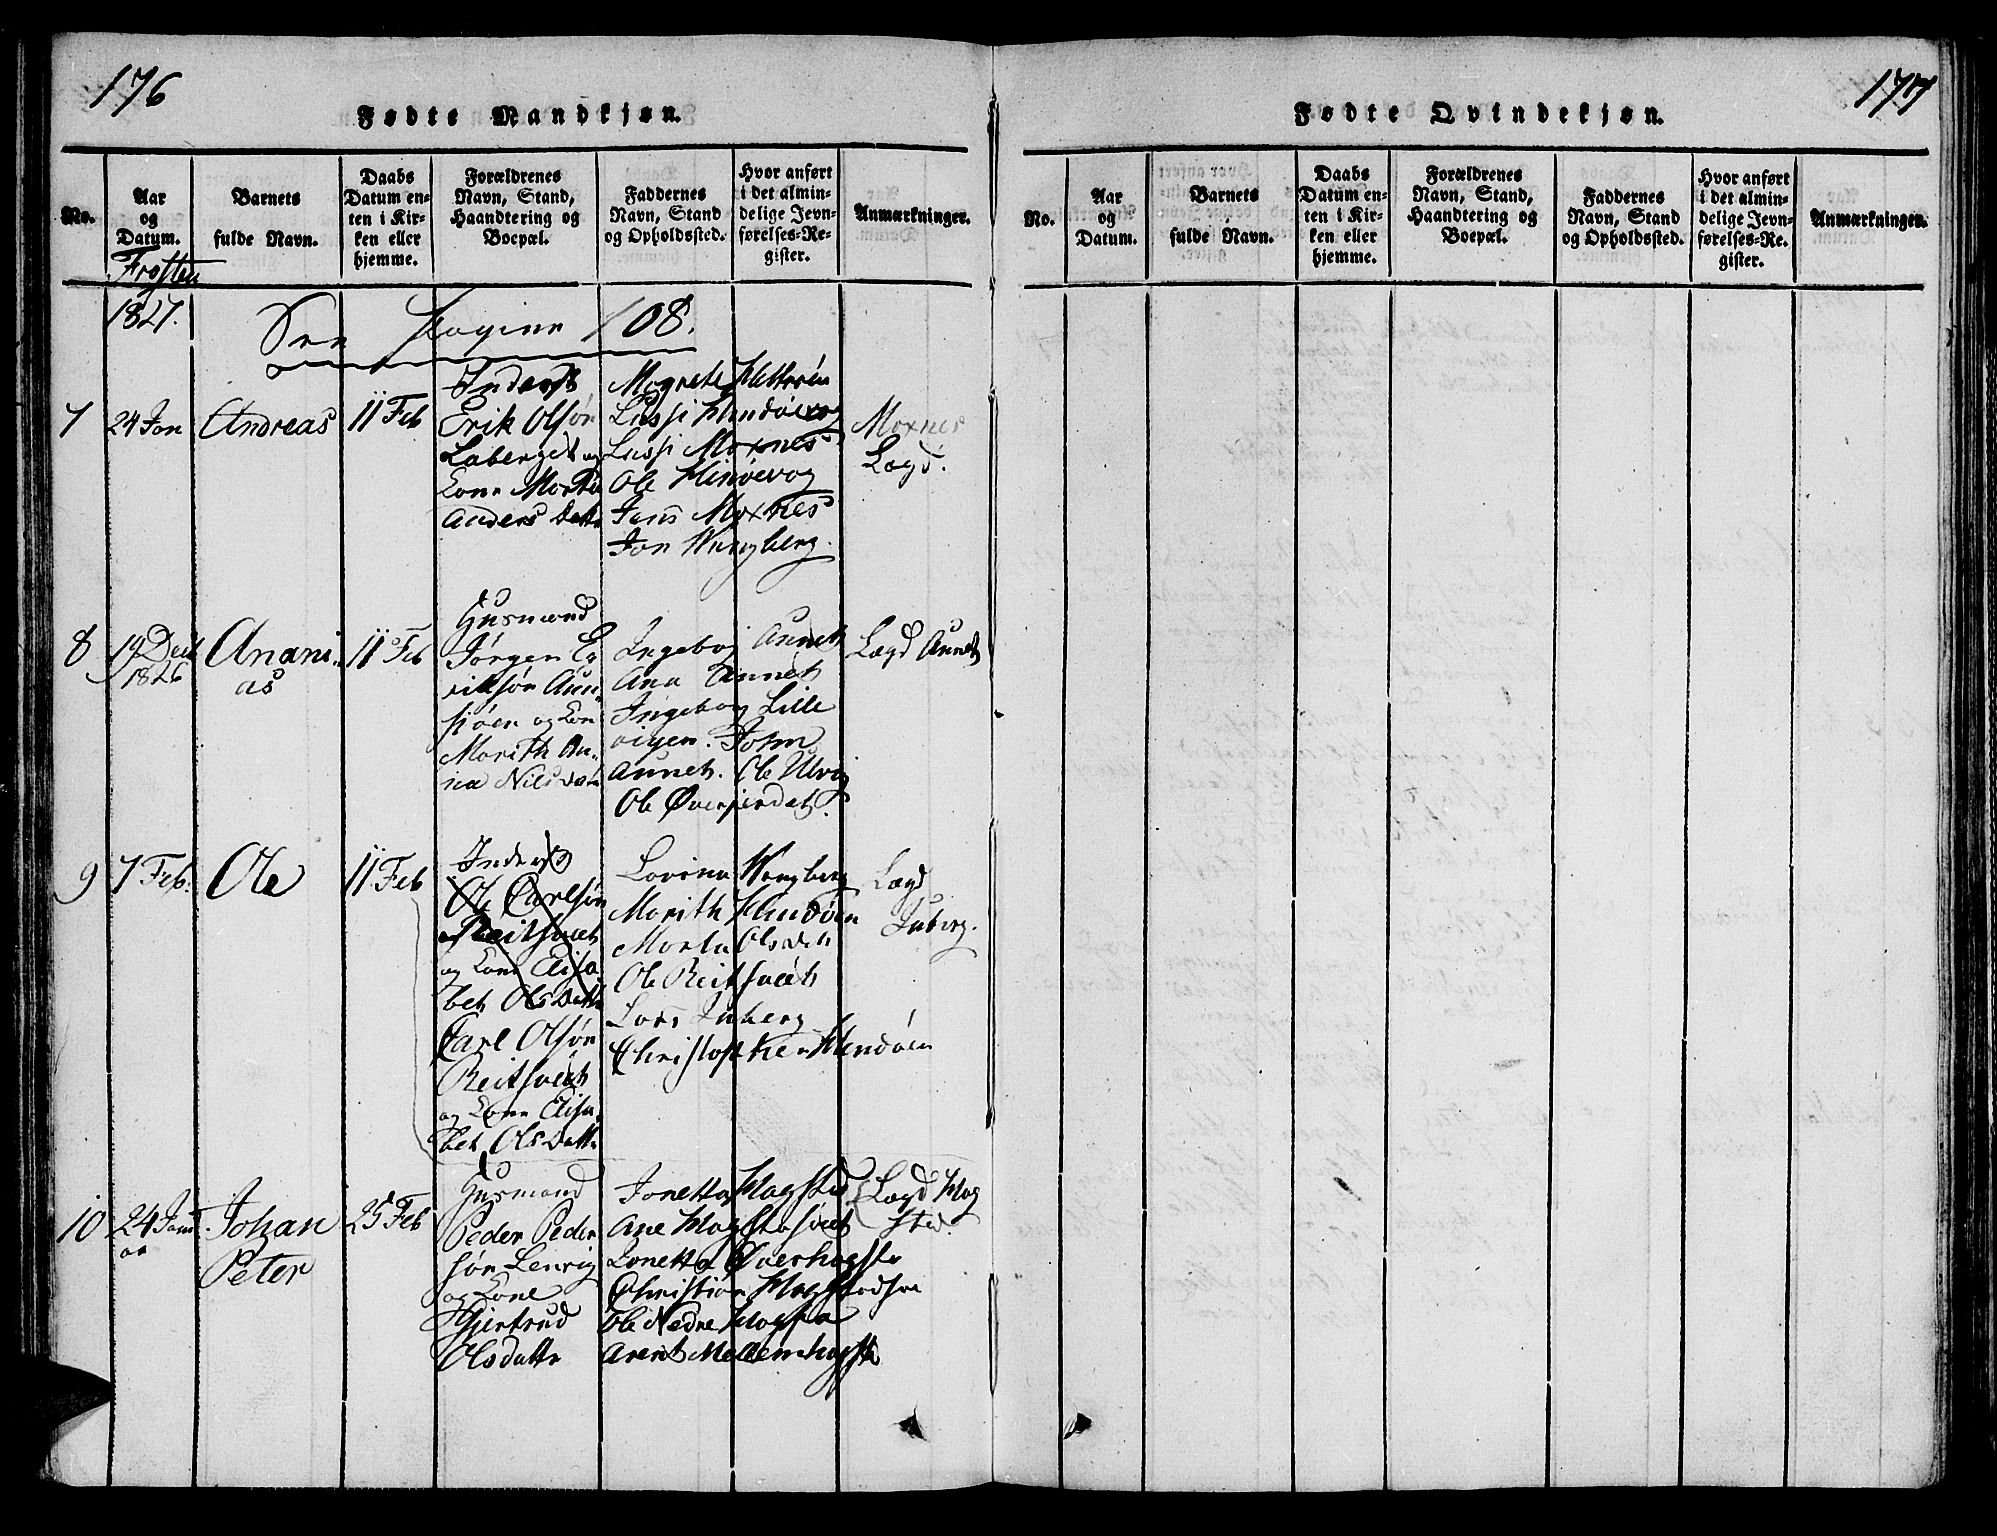 176
Fødte Mandkjøn.
No.
Aar
og
Datum.
Barnets
fulde Navn.
Daabs
Datum en-
ten i Kir-
ken eller
hjemme.
Forældrenes
Navn, Stand,
Haandtering og
Boepæl.
Faddernes
Navn, Stand
og Opholdssted.
Hvor anført
i det almin-
delige Jevn-
førelses-Re-
gister.
Anmærkninger.
Frosten
1827.
See Pagina 108.
7
24 Jan
Andreas
11 Feb
Inderst
Erik Olsøn
Laberget og
Kone Marta
Anders Datt
Magrete
Lussi
Lussi Moxnes
Ole
Jens Moxnes
Jon Wangberg.
Moxnes
Lægd.
8
19 Decb
1826
Anani-
as
11 Feb
Husmand
Jørgen E-
riksøn Aun-
sjøen og Kon
Marith An-
na Nilsdatt
Ingebog Aunet
Ana Aunet
Ingebog Lille
vigen. John
Aunet. Ole Ulvig
Ole
Lægd Aunet
9
7 Feb.
Ole
11 Feb
Inderst
Ole Carlsøn
Reitsvæet
og Kone Elisa
bet Olsdatt
Carl Olsøn
Reitsvæet
og Kone Elisa
bet Olsdatt
Lorina Wangberg
Marith
Marta Olsdatt
Ole Reitsvæet
Lars Inberg
Lægd
Inberg.
10
24 Janu
ar
Johan
Peter
25 Feb
Husmand
Peder Peder
søn Lenvig
og Kone
Gjertrud
Olsdattr
Jonetta Hogstad
Ane
Lonetta Overhogsta
Christian
Ole Nedre Hogsta
Arent Mellemhogsta
Lægd Hog
stad.
177
Fødte Qvindekjøn.
No.
Aar
og
Datum.
Barnets
fulde Navn.
Daabs
Datum en-
ten i Kir-
ken eller
hjemme.
Forældrenes
Navn, Stand,
Haandtering og
Boepæl.
Faddernes
Navn, Stand
og Opholdssted.
Hvor anført
i det almin-
delige Jevn-
førelses-Re-
gister.
Anmærkninger.